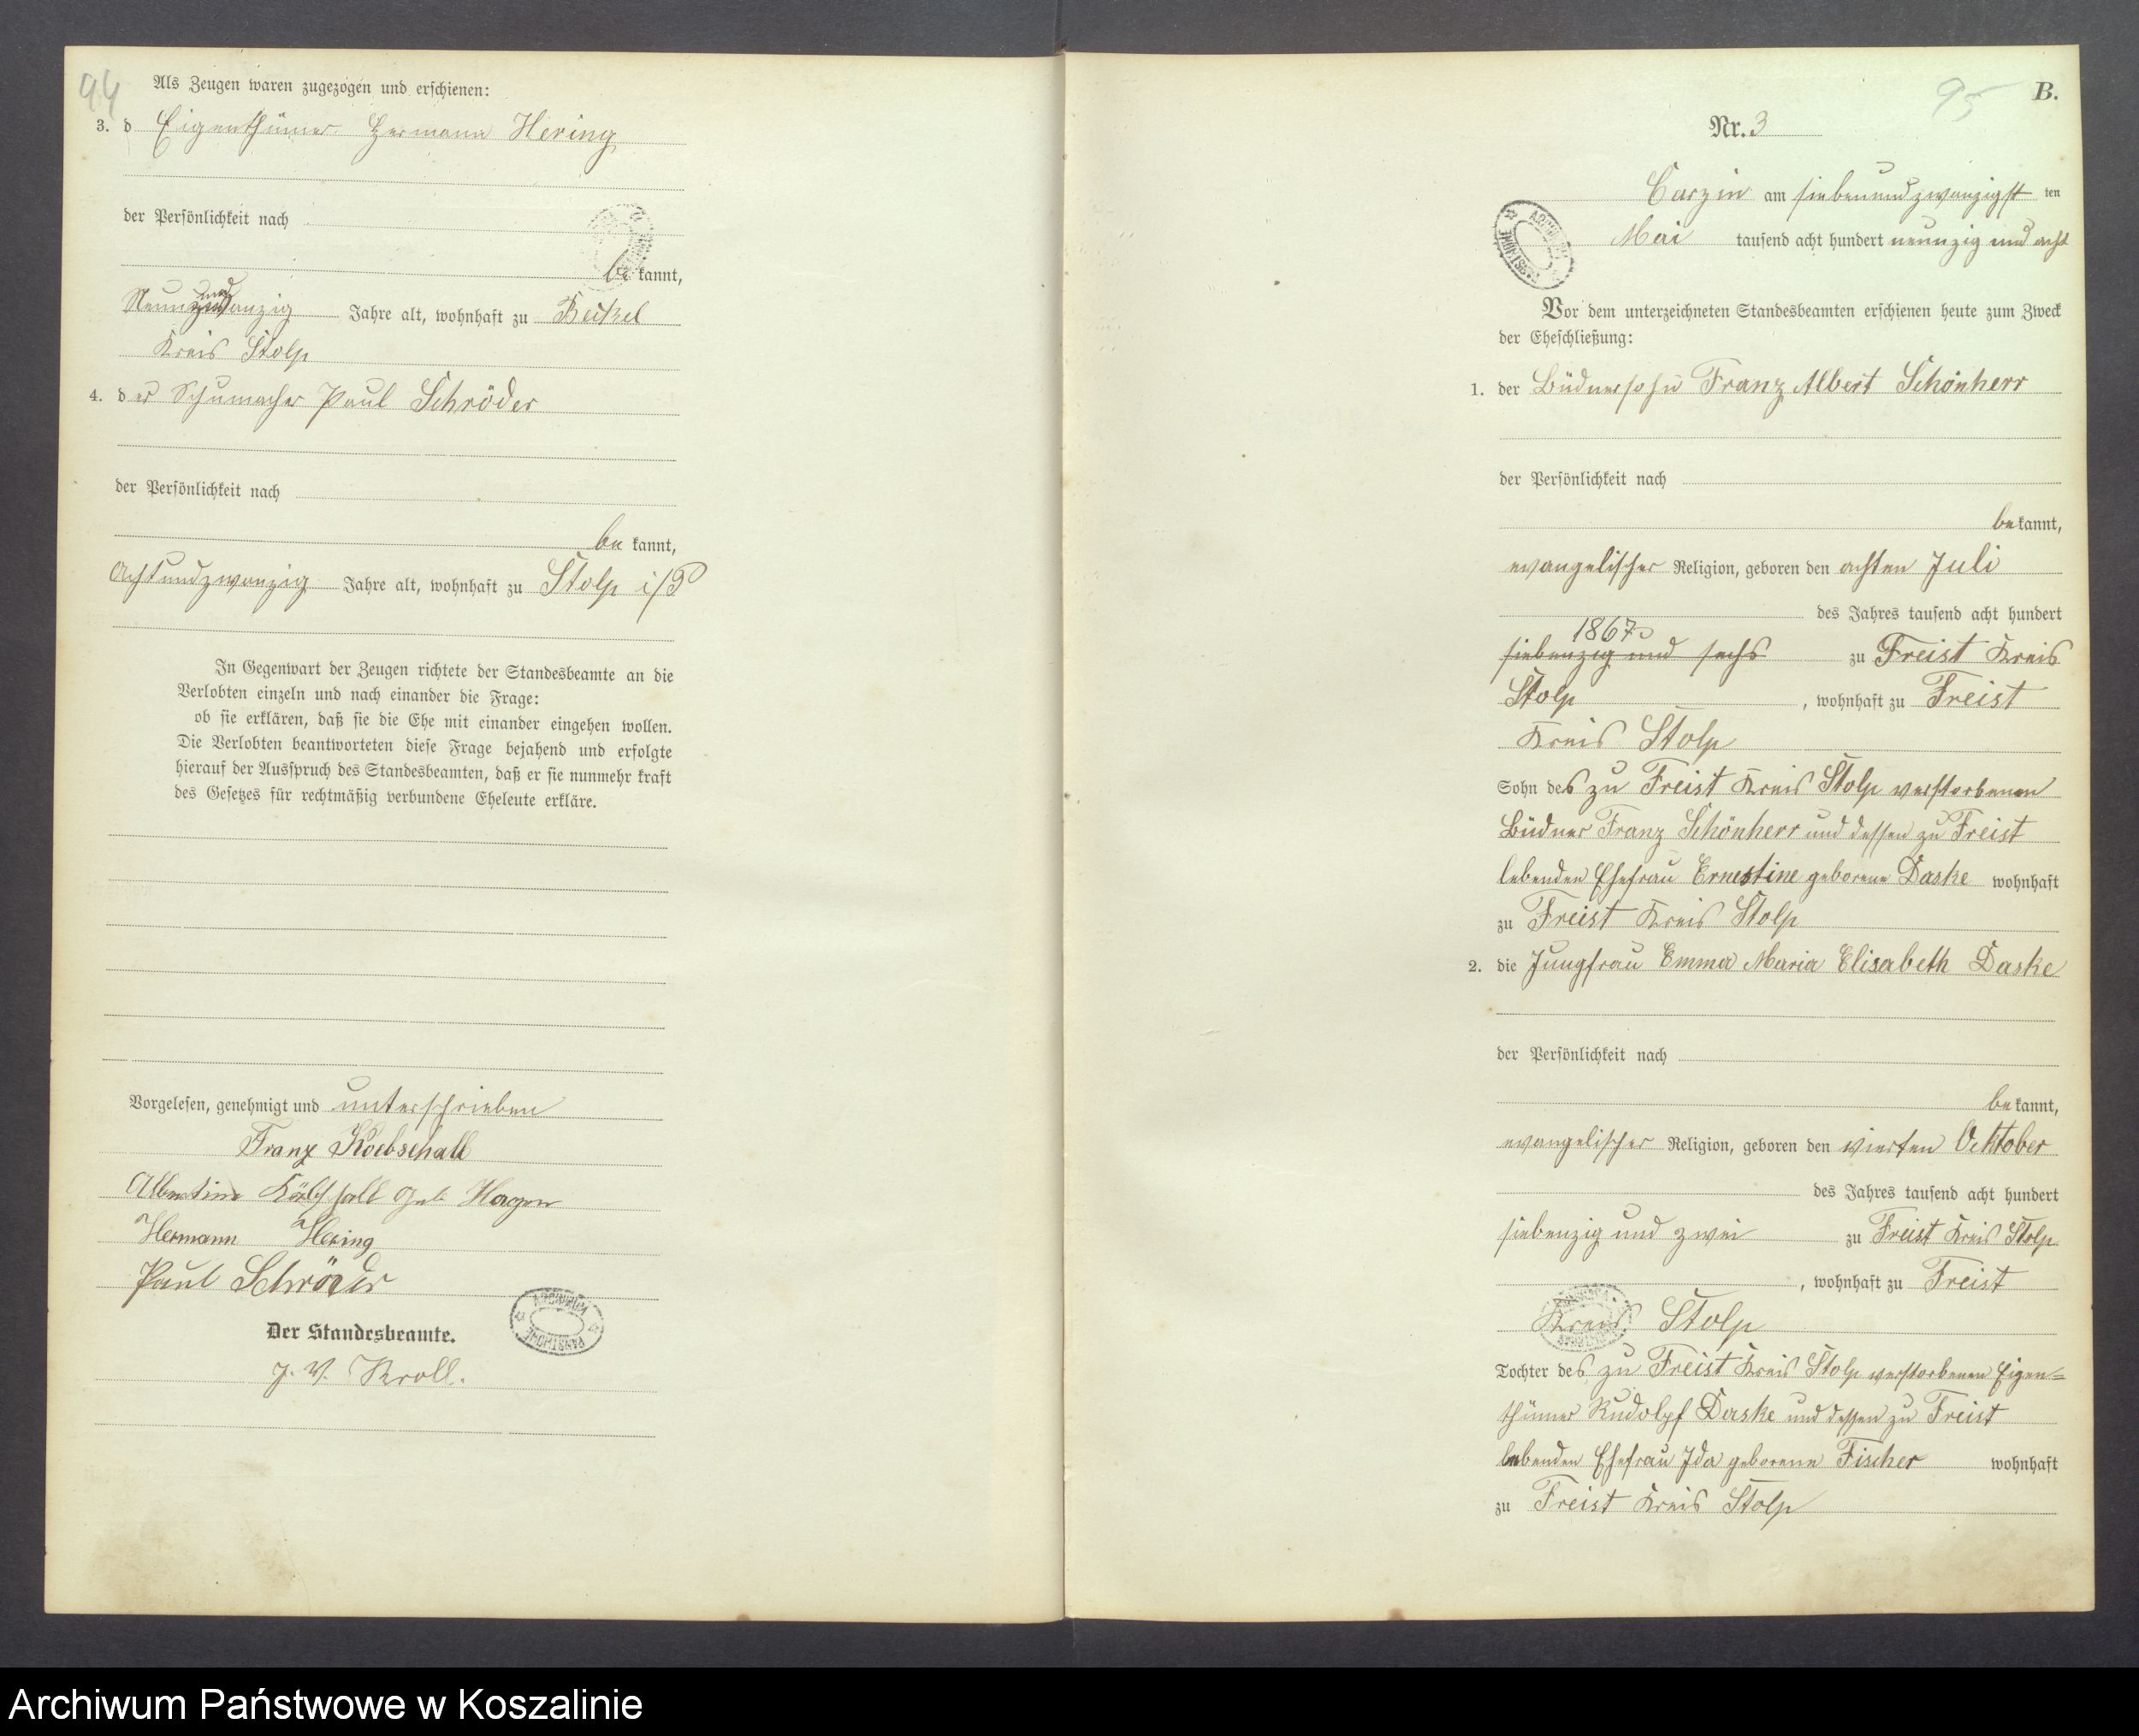 94
Als Zeugen waren zugezogen und erschienen:
3. d Eigenthümer Hermann Hering
der Persönlichkeit nach
be kannt,
Neunundzwanzig Jahre alt, wohnhaft zu Beckel
Kreis Stolp
4. der Schumacher Paul Schröder
der Persönlichkeit nach
be kannt,
Achtundzwanzig Jahre alt, wohnhaft zu Stolp i/P
In Gegenwart der Zeugen richtete der Standesbeamte an die
Verlobten einzeln und nach einander die Frage:
ob sie erklären, daß sie die Ehe mit einander eingehen wollen.
Die Verlobten beantworteten diese Frage bejahend und erfolgte
hierauf der Ausspruch des Standesbeamten, daß er sie nunmehr kraft
des Gesetzes für rechtmäßig verbundene Eheleute erkläre.
Vorgelesen, genehmigt und unterschrieben
Franz Koebschall
Albertine geb Hagen
Hermann Hering
Paul Schröder
Der Standesbeamte.
J. V. Kroll.
95
B.
Nr. 3
Carzin am siebenundzwanzigst ten
Mai tausend acht hundert neunzig und acht
Vor dem unterzeichneten Standesbeamten erschienen heute zum Zweck
der Eheschließung:
1. der Büdnersohn Franz Albert Schönherr
der Persönlichkeit nach
be kannt,
evangelischer Religion, geboren den achten Juli
des Jahres tausend acht hundert
1867
siebenzig und sechs zu Freist Kreis
Stolp , wohnhaft zu Freist
Kreis Stolp
Sohn des zu Freist Kreis Stolp verstorbenen
Büdner Franz Schönherr und dessen zu Freist
lebenden Ehefrau Ernestine geborene Daske wohnhaft
zu Freist Kreis Stolp
2. die Jungfrau Emma Maria Elisabeth Daske
der Persönlichkeit nach
be kannt,
evangelischer Religion, geboren den vierten Oktober
des Jahres tausend acht hundert
siebenzig und zwei zu Freist Kreis Stolp
, wohnhaft zu Freist
Kreis Stolp
Tochter des zu Freist Kreis Stolp verstorbenen Eigen=
thümer Rudolpf Daske und dessen zu Freist
lebenden Ehefrau Ida geborene Fischer wohnhaft
zu Freist Kreis Stolp
Archiwum Państwowe w Koszalinie